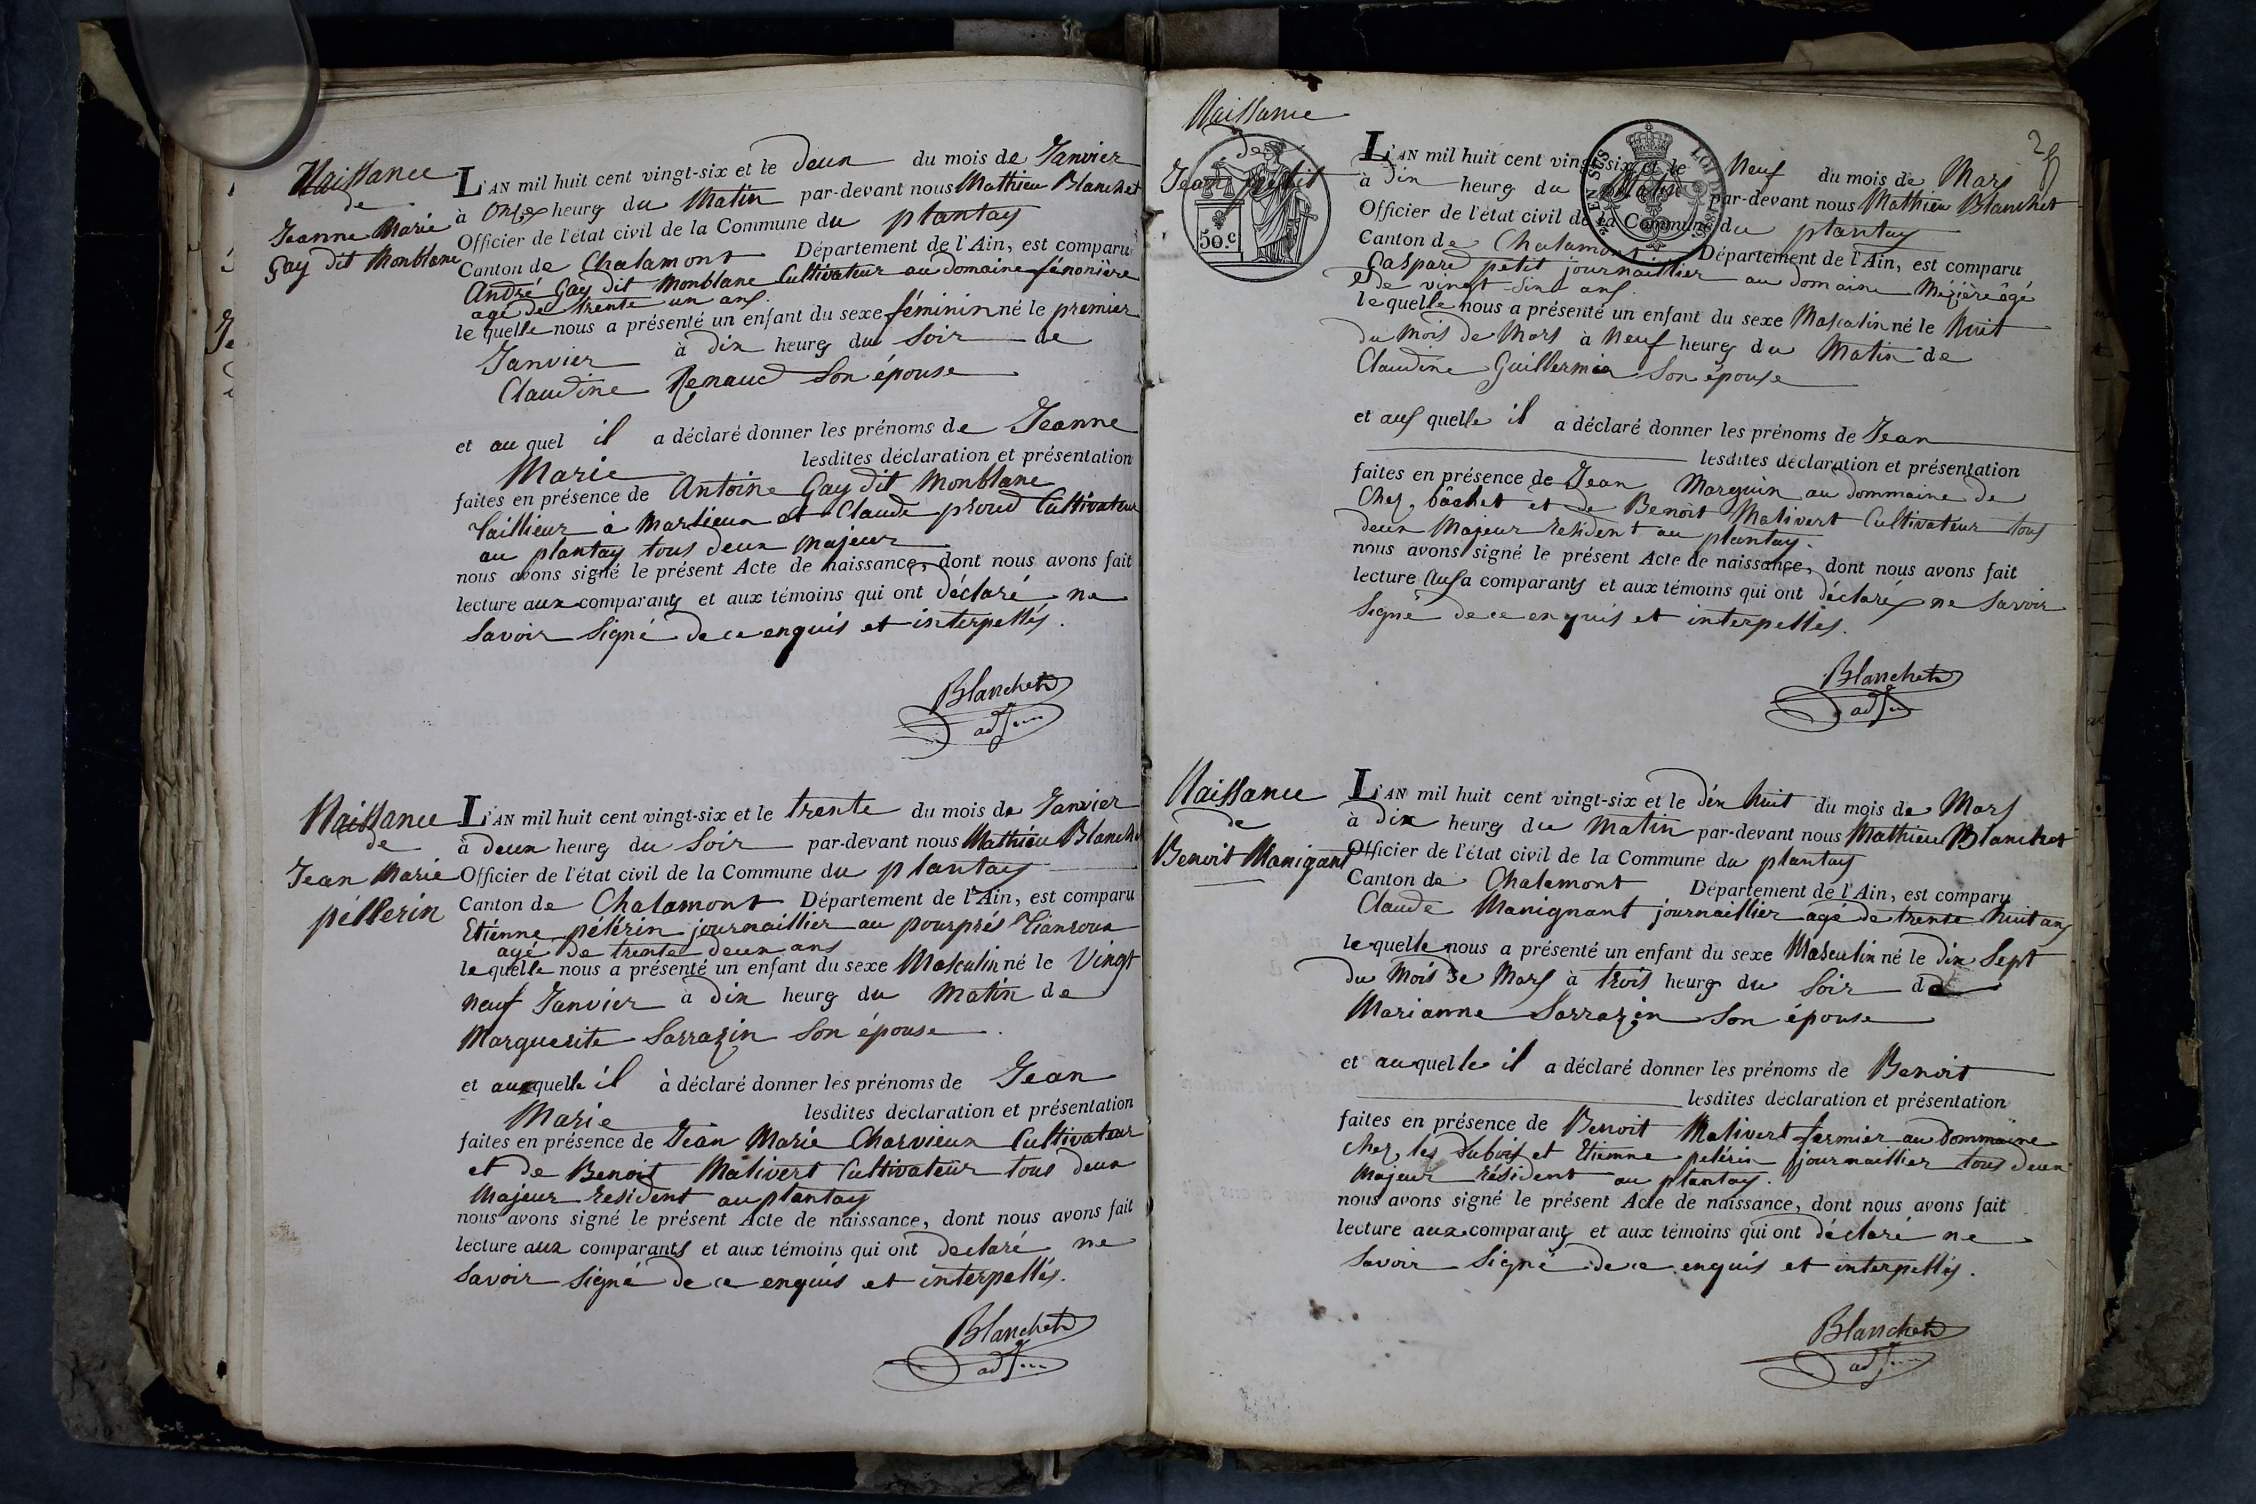 Naissance
de
Jeanne Marie
Gay dit Monblanc
L'AN mil huit cent vingt-six et le deux du mois de Janvier
à Onze heures du Matin par-devant nous Mathieu Blanchet
Officier de l'état civil de la Commune du plantay
Canton de Chalamont Département de l'Ain, est comparu
André Gay dit Monblanc Cultivateur au domaine fénonière
agé de trente un ans.
le quelle nous a présenté un enfant du sexe féminin né le premier
Janvier à dix heures du Soir de
Claudine Renaud Son épouse
et au quel il a déclaré donner les prénoms de Jeanne
Marie lesdites déclaration et présentation
faites en présence de Antoine Gay dit Monblanc
taillieur à Marlieux et Claude proud Cultivateur
au plantay tous deux majeur
nous avons signé le présent Acte de naissance, dont nous avons fait
lecture aux comparants et aux témoins qui ont déclaré ne
Savoir Signé de ce enquis et interpellés.
Blanchet
adj
Naissance
de
Jean Marie
péllerin
L'AN mil huit cent vingt-six et le trente du mois de Janvier
à deux heures du Soir par-devant nous Mathieu Blanchet
Officier de l'état civil de la Commune du plantay
Canton de Chalamont Département de l'Ain, est comparu
Etiénne pélérin journaillier au pourprés
agé de trente deux ans
le quelle nous a présenté un enfant du sexe Masculin né le Vingt
neuf Janvier à dix heures du Matin de
Marguerite Sarrazin Son épouse
et aux quelle il à déclaré donner les prénoms de Jean
Marie lesdites déclaration et présentation
faites en présence de Jean Marie Charvieux Cultivateur
et de Benoit Malivert Cultivateur tous deux
Majeur résident au plantay
nous avons signé le présent Acte de naissance, dont nous avons fait
lecture aux comparants et aux témoins qui ont declaré ne
Savoir Signé de ce enquis et interpellés.
Blanchet
adj
25
Naissance
de
Jean petit
50.c
EN SUS
LOI DE 1816
L'AN mil huit cent vingt-six et le Neuf du mois de Mars
à dix heures du Matin par-devant nous Mathieu Blanchet
Officier de l'état civil de la Commune du plantay
Canton de Chalamont Département de l'Ain, est comparu
Gaspard petit journaillier au domaine Mézière âgé
de vingt Six ans.
le quelle nous a présenté un enfant du sexe Masculin né le Huit
du Mois de Mars à Neuf heures du Matin de
Claudine Guillermin Son épouse
et aus quelle il a déclaré donner les prénoms de Jean
lesdites déclaration et présentation
faites en présence de Jean Marguin au dommaine de
Chez, bâchet et de Benoit Malivert Cultivateur tous
deux Majeur résident au plantay.
nous avons signé le présent Acte de naissance, dont nous avons fait
lecture comparants et aux témoins qui ont déclaré ne Savoir
Signé de ce enquis et interpellés.
Blanchet
adj
Naissance
de
Benoit Manigant
L'AN mil huit cent vingt-six et le dix huit du mois de Mars
à dix heures du Matin par-devant nous Mathieu Blanchet
Officier de l'état civil de la Commune du plantay
Canton de Chalamont Département de l'Ain, est comparu
Claude Manignant journaillier agé de trente huit ans
le quelle nous a présenté un enfant du sexe Masculin né le dix Sept
du Mois de Mars à trois heures du Soir de
Marianne Sarrazin Son épouse
et au quelle il a déclaré donner les prénoms de Benoit
lesdites déclaration et présentation
faites en présence de Benoit Malivert fermier au Dommaine
Chez, les Dubois et Etienne pelérin journaillier tous deux
Majeur résident au plantay.
nous avons signé le présent Acte de naissance, dont nous avons fait
lecture aux comparants et aux témoins qui ont déclaré ne
Savoir Signé de ce enquis et interpellés.
Blanchet
adj